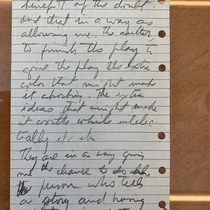 benefit of the doubt
and that in a way are
allowing me the author
to finish the play to
give the play the extra
color that might make
it absorbing. The extra
ideas that might made
it worth while intelec-
trally etc etc
They are in a way giving
me the chance to
the person who tells
a story and having